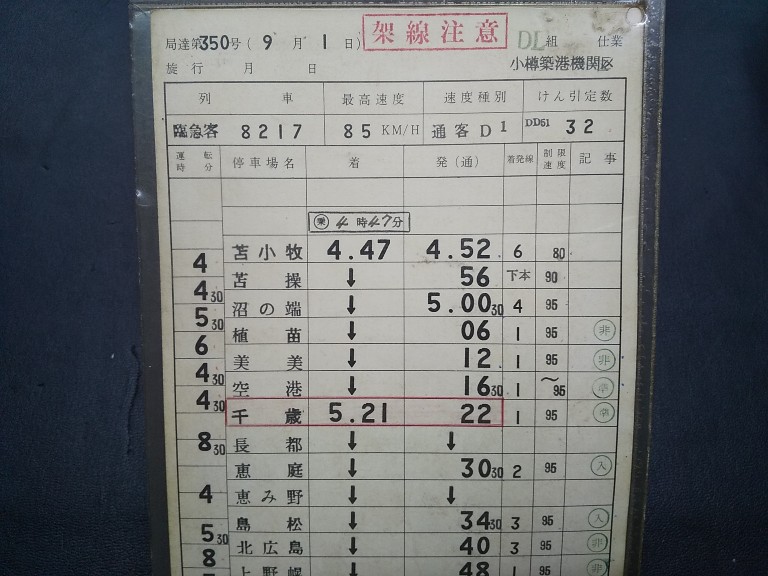 局達第350号(9月1日) 架線注意 DL組 仕業
施行 月 日 小樽築港機関区
列車 最高速度 速度種別 けん引定数
臨急客 8217 85 KM/H 通客D1 DD51 32
運転時分 停車場名 着 発(通) 着発線 制限速度 記事
乗 4時47分
苫小牧 4.47 4.52 6 80
4 苫操 ↓ 56 下本 90
4 30 沼の端 ↓ 5.00 30 4 95
5 30 植苗 ↓ 06 1 95 非
6 美々 ↓ 12 1 95 非
4 30 空港 ↓ 16 30 1 〜95
4 30 千歳 5.21 22 1 95
長都 ↓ ↓
8 30 恵庭 ↓ 30 30 2 95 入
恵み野 ↓ ↓
4 島松 ↓ 34 30 3 95 入
5 30 北広島 ↓ 40 3 95 非
8 上野幌 ↓ 48 1 95 非